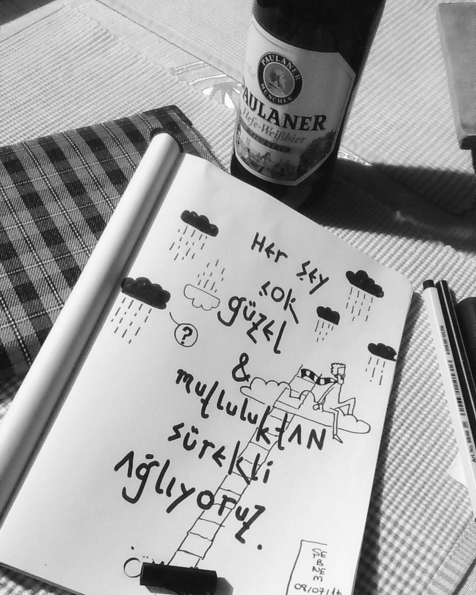 PAULANER
MÜNCHEN
PAULANER
Hefe-Weißbier
Her şey
çok
güzel
&
mutluluktAN
sürekli
Ağlıyoruz.
?
ŞEBNEM